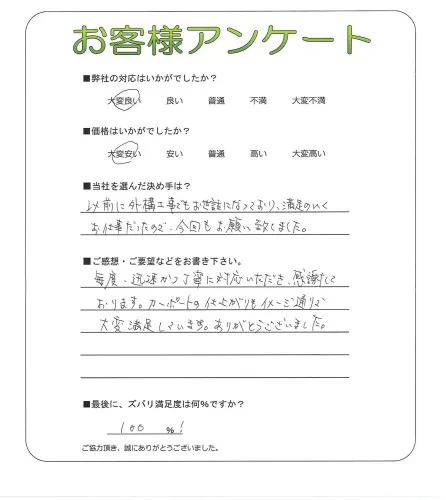 お客様アンケート
■弊社の対応はいかがでしたか?
大変良い 良い 普通 不満 大変不満
■価格はいかがでしたか?
大変安い 安い 普通 高い 大変高い
■当社を選んだ決め手は?
以前に外構工事でもお世話になっており、満足のいく
お仕事だったので、今回もお願い致しました。
■ご感想・ご要望などをお書き下さい。
毎度、迅速かつ丁寧に対応いただき、感謝して
おります。カーポートの仕上がりもイメージ通りで
大変満足しています。ありがとうございました。
■最後に、ズバリ満足度は何%ですか?
100 %!
ご協力頂き、誠にありがとうございました。